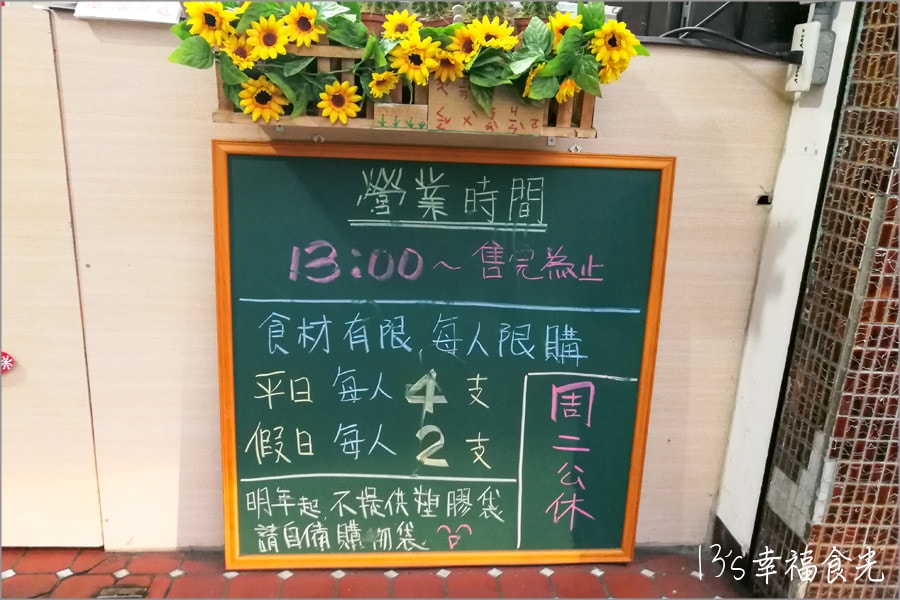 營業時間
13:00～售完為止
食材有限,每人限購
平日 每人 4 支
假日 每人 2 支
周二公休
明年起,不提供塑膠袋
請自備購物袋
13's幸福食光